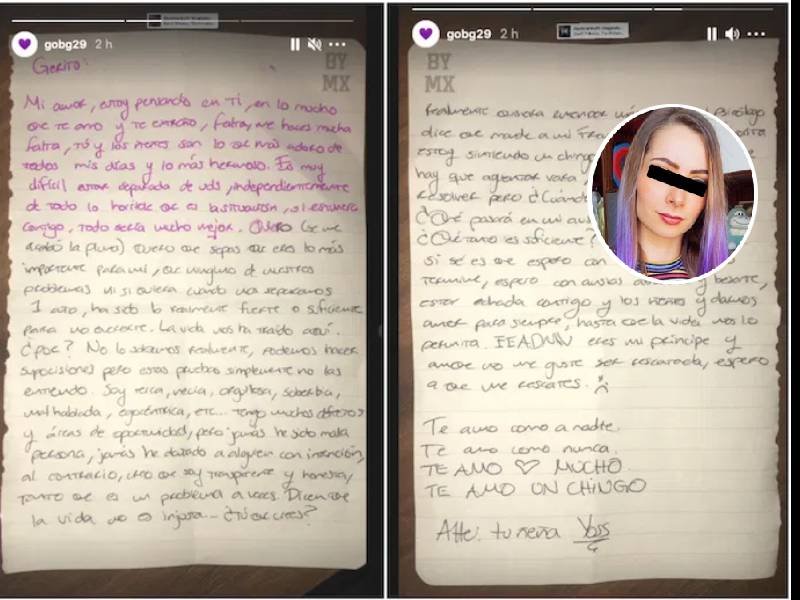 gobg29 2 h
BY
MX
Gerito:
Mi amor, estoy pensando en Ti, en lo mucho
que te amo y te extraño, fatra, me haces mucha
falta, tú y los nenes son lo que más adoro de
todos mis días y lo más hermoso. Es muy
difícil estar separada de uds, independientemente
de todo lo horrible que es la situación, si estuviera
contigo, todo sería mucho mejor. Quiero (se me
acabó la pluma) Quiero que sepas que eres lo más
importante para mí, que ninguno de nuestros
problemas ni siquiera cuando nos separamos
1 año, ha sido lo realmente fuerte o suficiente
para no quererte. La vida nos ha traído aquí.
¿Por? No lo sabemos realmente, podemos hacer
suposiciones pero estas pruebas simplemente no las
entiendo. Soy terca, necia, orgullosa, soberbia,
mal hablada, egocéntrica, etc... tengo muchos defectos
y áreas de oportunidad, pero jamás he sido mala
persona, jamás he dañado a alguien con intención,
al contrario, creo que soy transparente y honesta,
tanto que es un problema a veces. Dicen que
la vida no es injusta... ¿Tú qué crees?
gobg29 2 h
BY
MX
Realmente quisiera entender Psicólogo
dice que mande a mi
estoy sintiendo un
hay que aguantar vara,
resolver pero ¿Cuándo
¿Qué pasará en mi
¿Qué tanto es suficiente?
Si sé es que espero con
termine, espero con ansias y besarte,
estar echada contigo y los nenes y darnos
amor para siempre, hasta que la vida nos lo
permita. eres mi príncipe y
aunque no me guste ser rescatada, espero
a que me rescates.
Te amo como a nadie.
Te amo como nunca.
TE AMO ♡ MUCHO
TE AMO UN CHINGO
Atte: tu nena Yoss